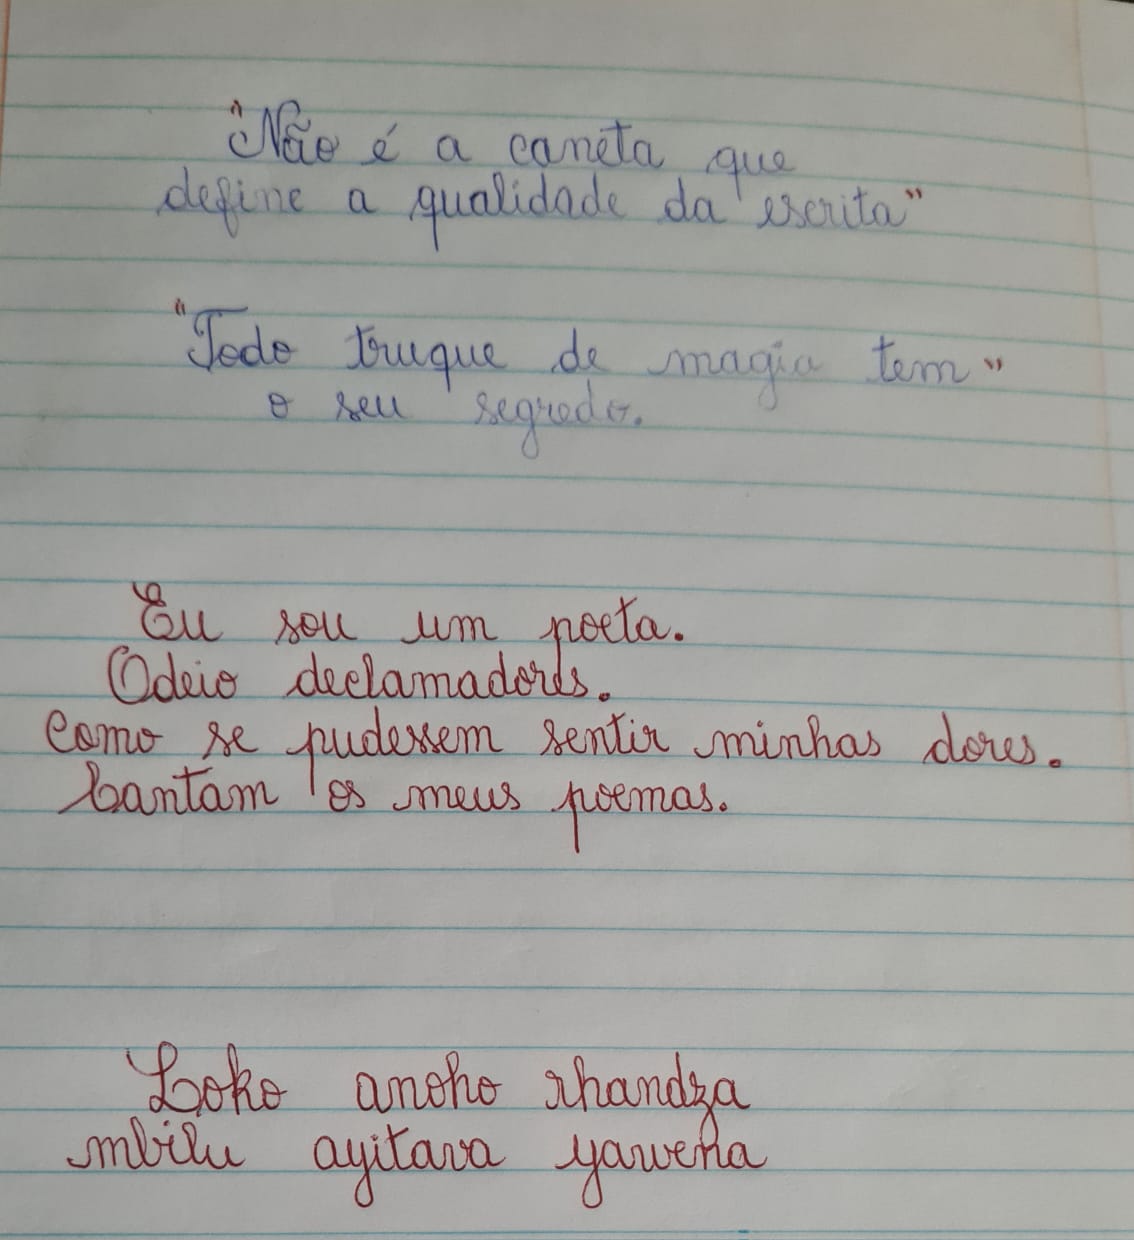 "Não é a caneta que
define a qualidade da escrita"
"Todo truque de magia tem"
o seu segredo.
Eu sou um poeta.
Odeio declamadores.
Como se pudessem sentir minhas dores.
Cantam os meus poemas.
Loko anoho rhandza
mbilu ayitava yawena